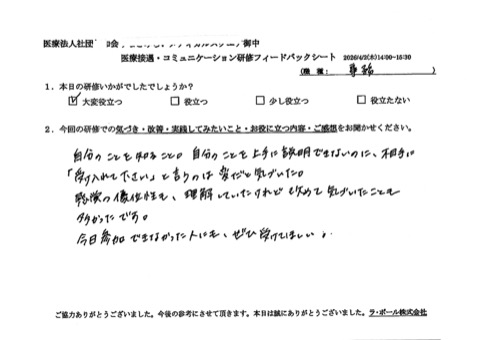 医療法人社団 会 御中
医療接遇・コミュニケーション研修フィードバックシート 2026/4/2(木)14:00~15:30
(職種: 事務)
1. 本日の研修いかがでしたでしょうか?
☑ 大変役立つ □ 役立つ □ 少し役立つ □ 役立たない
2. 今回の研修での気づき・改善・実践してみたいこと・お役に立つ内容・ご感想をお聞かせください。
自分のことを知ること。自分のことを上手に説明できないのに、相手に
「受け入れて下さい」と言うのは変だと気づいた。
感覚の優位性も、理解していたけれど改めて気づいたことも
多かったです。
今日参加できなかった人にも、ぜひ受けてほしい。
ご協力ありがとうございました。今後の参考にさせて頂きます。本日は誠にありがとうございました。ラ・ポール株式会社